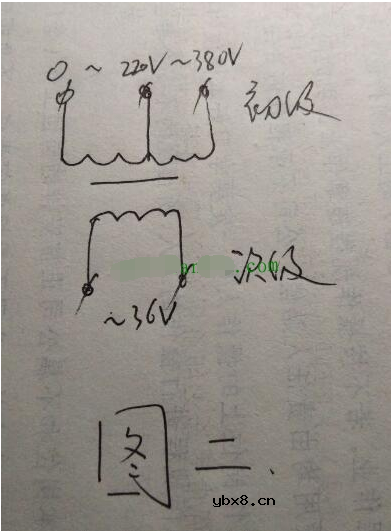 0 ~ 220V ~ 380V
初级
次级
~36V
图二、
ybx8.cn